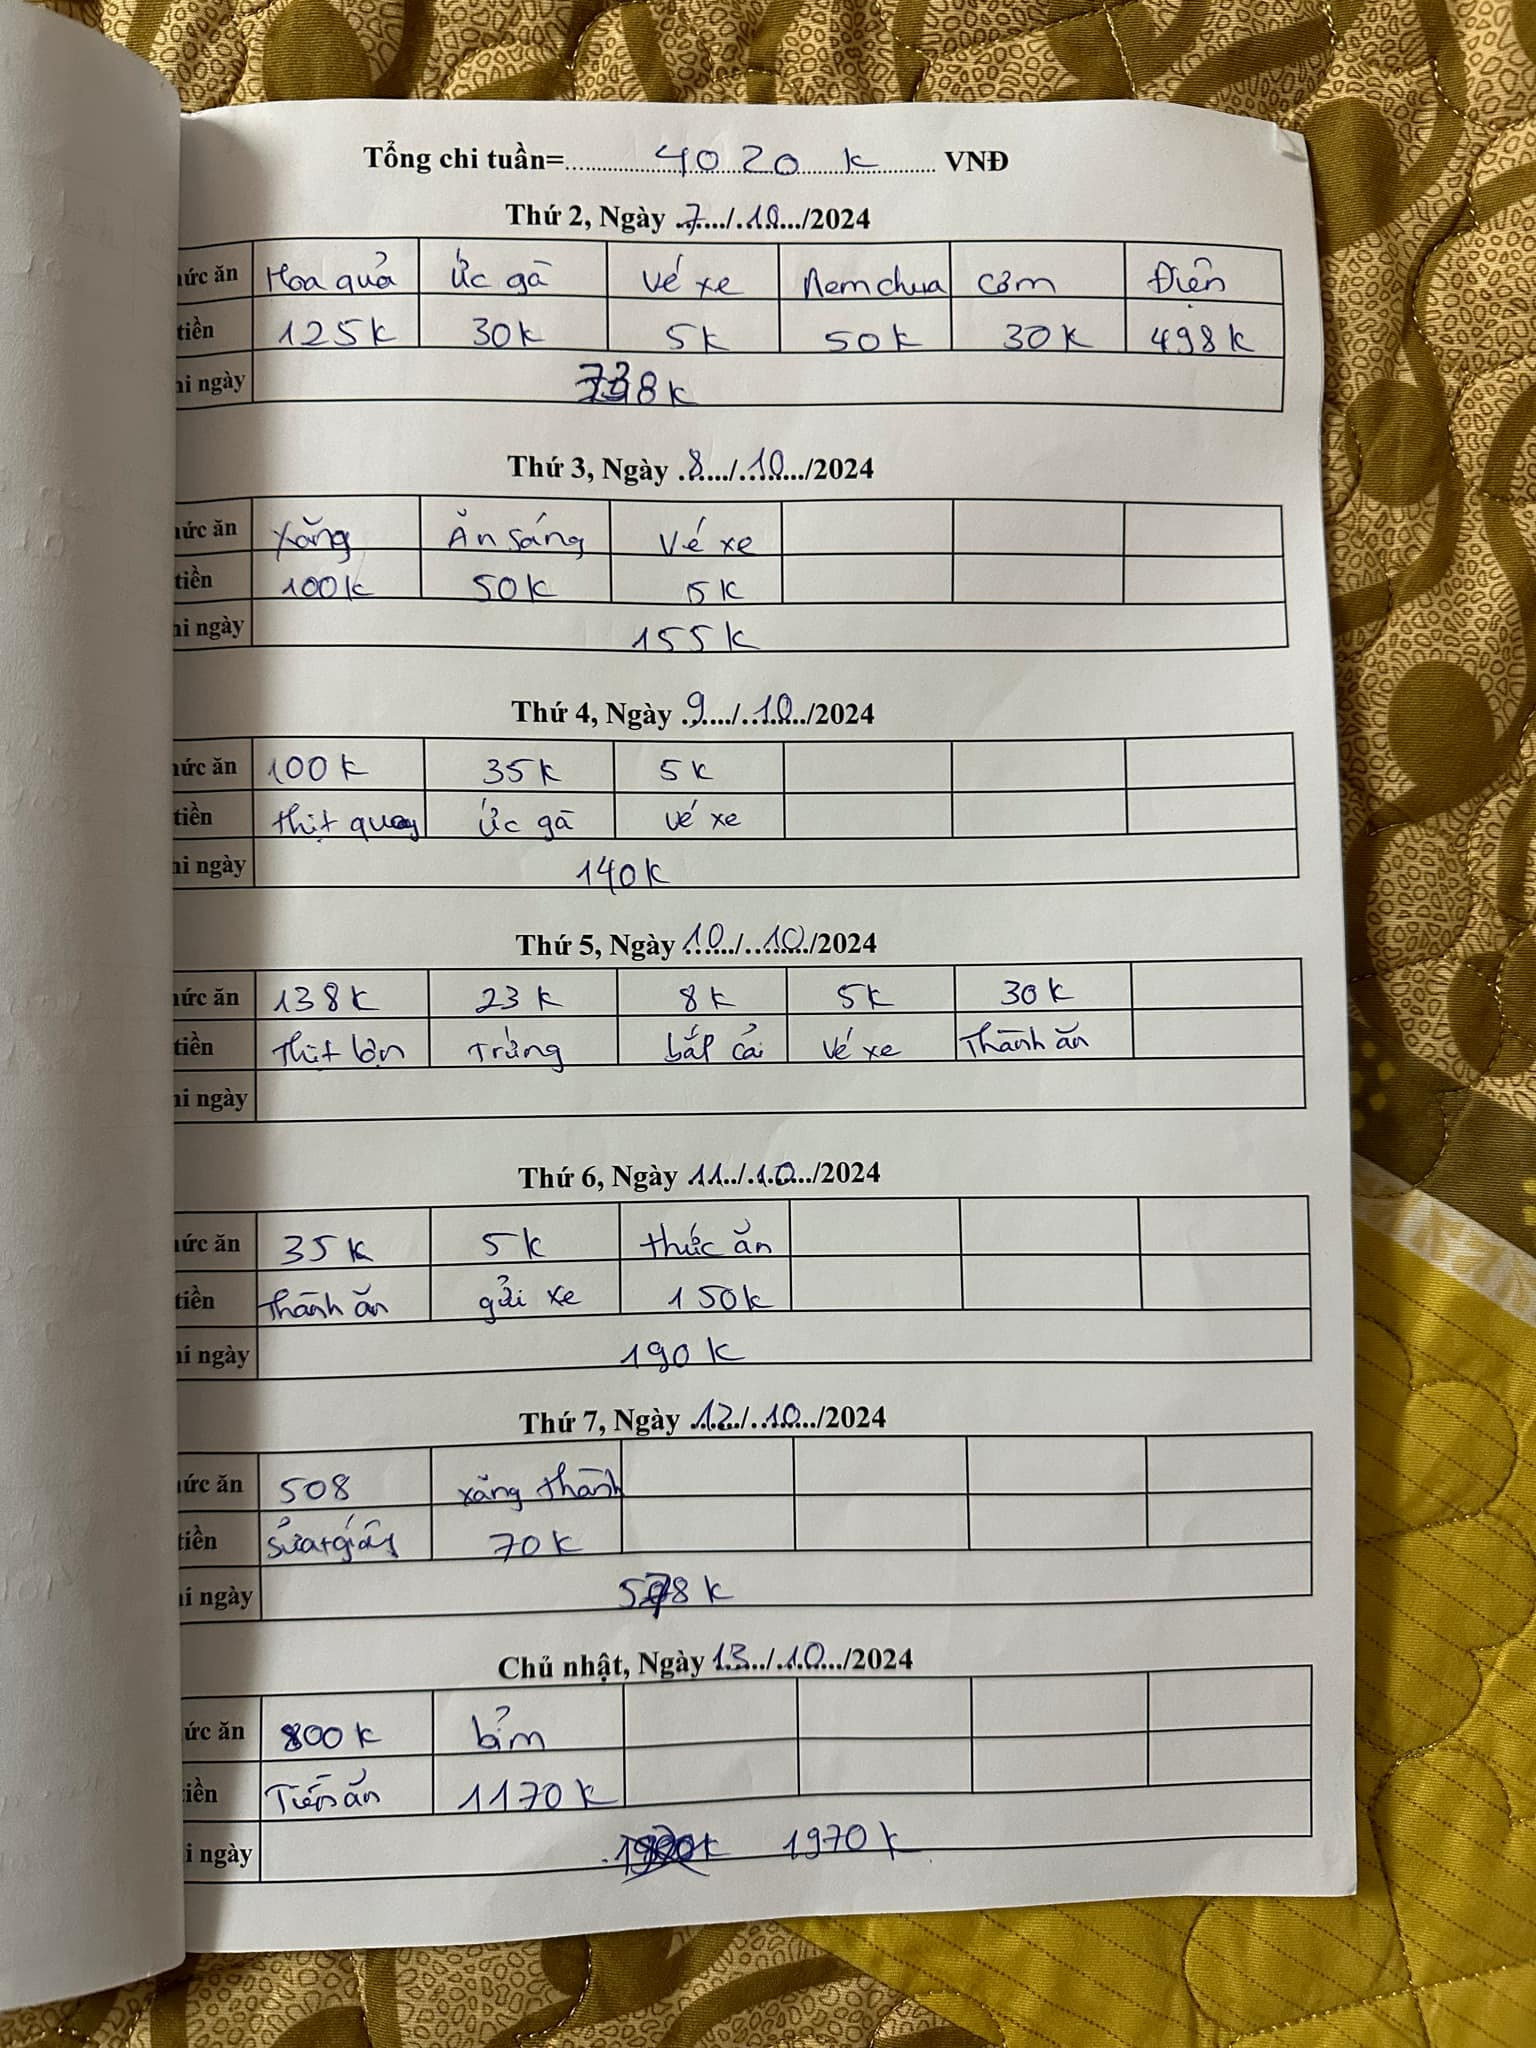 Tổng chi tuần=4020 k VNĐ
Thứ 2, Ngày 7/10/2024
ức ăn Hoa quả Ức gà Vé xe Nem chua Cơm Điện
tiền 125k 30k 5k 50k 30k 498k
ngày 738k
Thứ 3, Ngày 8/10/2024
ức ăn Xăng Ăn sáng Vé xe
tiền 100k 50k 5k
ngày 155k
Thứ 4, Ngày 9/10/2024
ức ăn 100k 35k 5k
tiền thịt quay Ức gà Vé xe
ngày 140k
Thứ 5, Ngày 10/10/2024
ức ăn 138k 23k 8k 5k 30k
tiền Thịt lợn Trứng bắp cải Vé xe Thành ăn
ngày
Thứ 6, Ngày 11/10/2024
ức ăn 35k 5k thức ăn
tiền Thành ăn gửi xe 150k
ngày 190k
Thứ 7, Ngày 12/10/2024
ức ăn 508 xăng thành
tiền 70k
ngày 578k
Chủ nhật, Ngày 13/10/2024
ức ăn 800k bỉm
iền Tiền ăn 1170k
i ngày 1970k